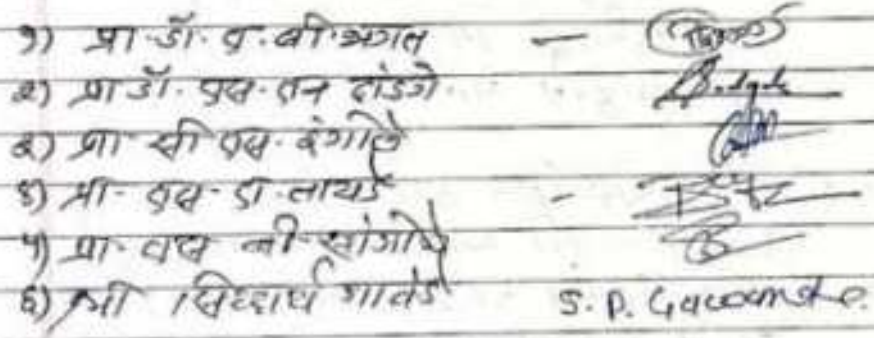 १) प्रा.डॉ. व. बी. भगत -
२) प्रा डॉ. एस. एन दांडगे.
३) प्रा सी एस. इंगोले
४) प्रा. एस. डी. तायडे -
५) प्रा. एस बी. सांगोळे
६) श्री सिध्दार्थ गावंडे S. P. Gawande.